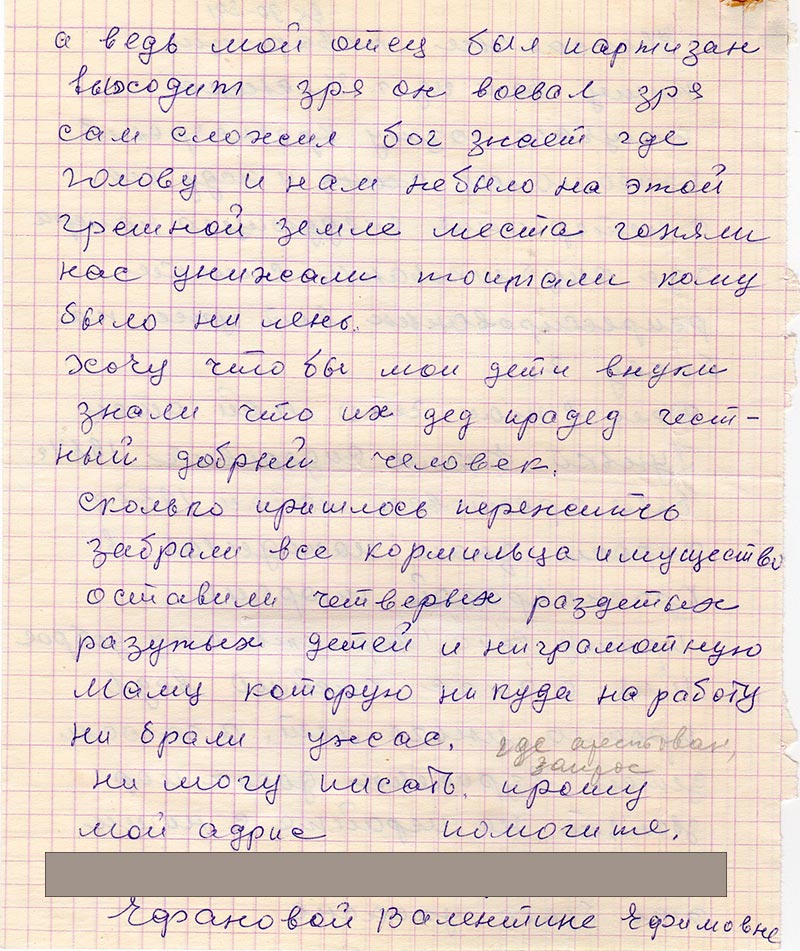 а ведь мой отец был партизан
выходит зря он воевал зря
сам сложил бог знает где
голову и нам небыло на этой
грешной земле места гоняли
нас унижали топтали кому
было ни лень.
хочу что бы мои дети внуки
знали что их дед прадед чест-
ный добрый человек.
сколько пришлось пережить
забрали все кормильца имущество
оставили четверых раздетых
разутых детей и ниграмотную
маму которую ни куда на работу
ни брали ужас.
где арестован,
запрос
ни могу писать. прошу
мой адрис помогите.
Ефановой Валентине Ефимовне